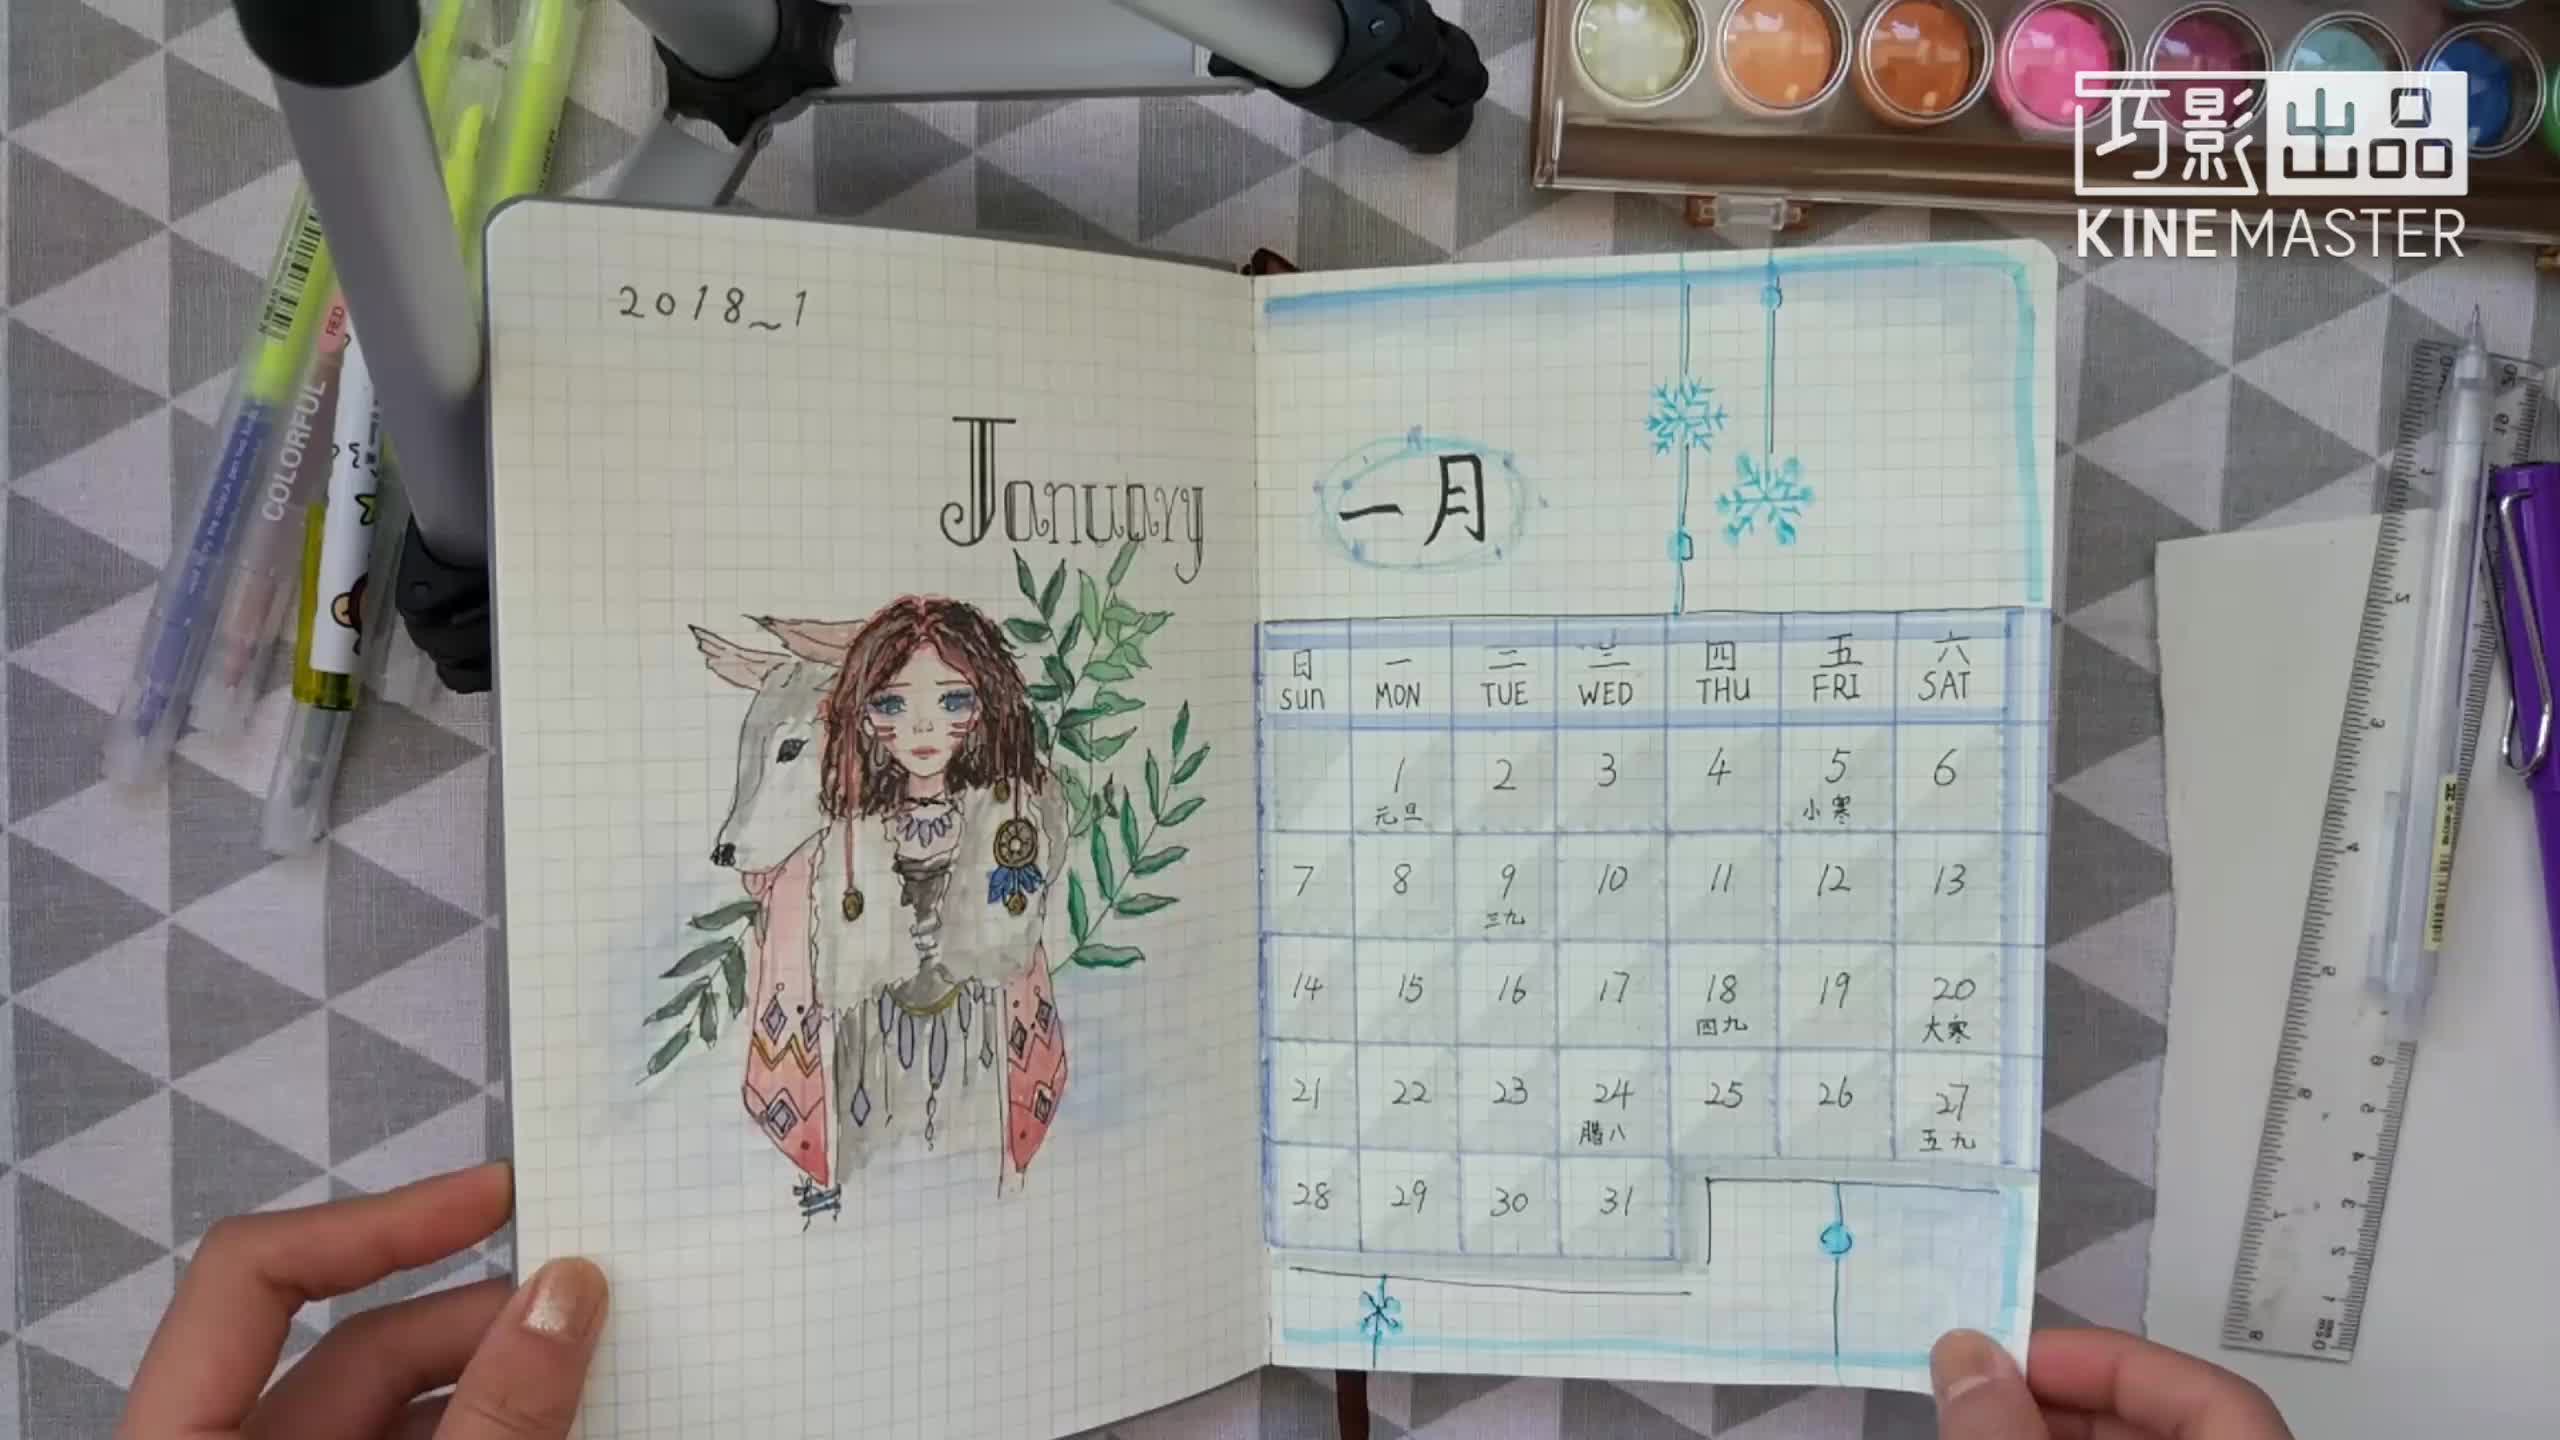 巧影出品
KINEMASTER
RED
COLORFUL
2018~1
January
一月
日 一 二 三 四 五 六
sun MON TUE WED THU FRI SAT
1 2 3 4 5 6
元旦 小寒
7 8 9 10 11 12 13
三九
14 15 16 17 18 19 20
四九 大寒
21 22 23 24 25 26 27
腊八 五九
28 29 30 31